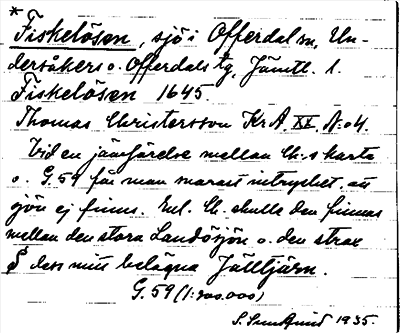 *
Fiskelösen, sjö i Offerdal sn, Un-
dersåkers o. Offerdals tg, Jämtl. l.
Fiskelösen 1645.
Thomas Christersson KrA, XX, N:o 4.
Vid en jämförelse mellan Ch:s karta
o. G. 59 får man snarast intrycket, att
sjön ej finns. Enl. Ch. skulle den finnas
mellan den stora Landösjön o. den strax
S dess mitt belägna Jälltjärn.
G. 59 (1:200.000)
1935